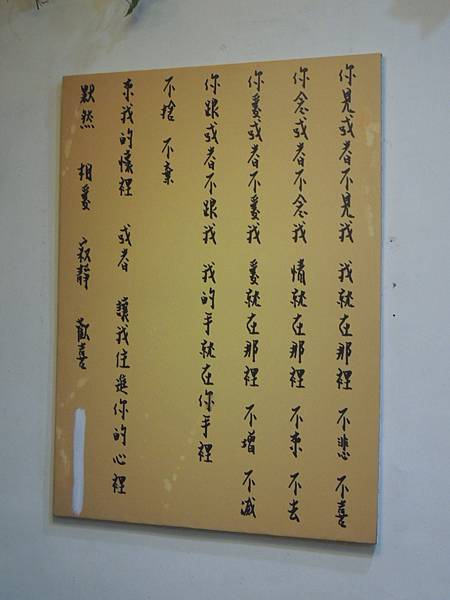 你見或者不見我 我就在那裡 不悲 不喜
你念或者不念我 情就在那裡 不來 不去
你愛或者不愛我 愛就在那裡 不增 不減
你跟或者不跟我 我的手就在你手裡
不捨 不棄
來我的懷裡 或者 讓我住進你的心裡
默然 相愛 寂靜 歡喜